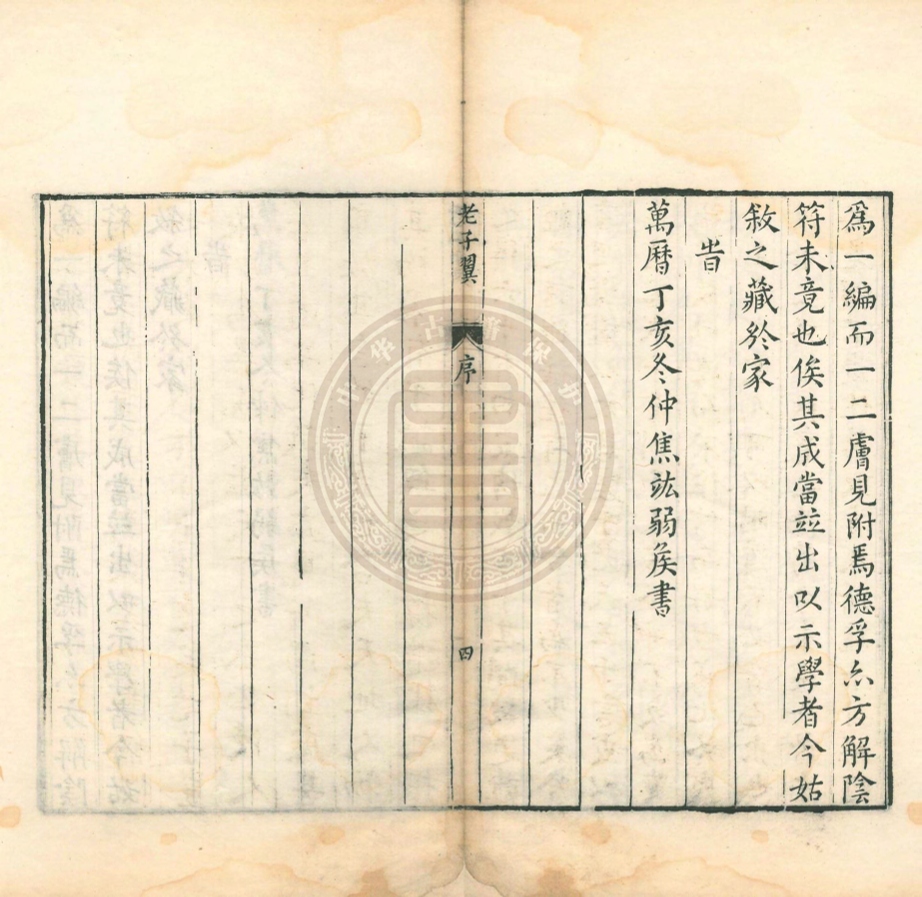 爲一編而一二膚見附焉德孚亦方解陰
符未竟也俟其成當竝出以示學者今姑
敘之藏於家
旹
萬曆丁亥冬仲焦竑弱矦書
老子翼
序
四